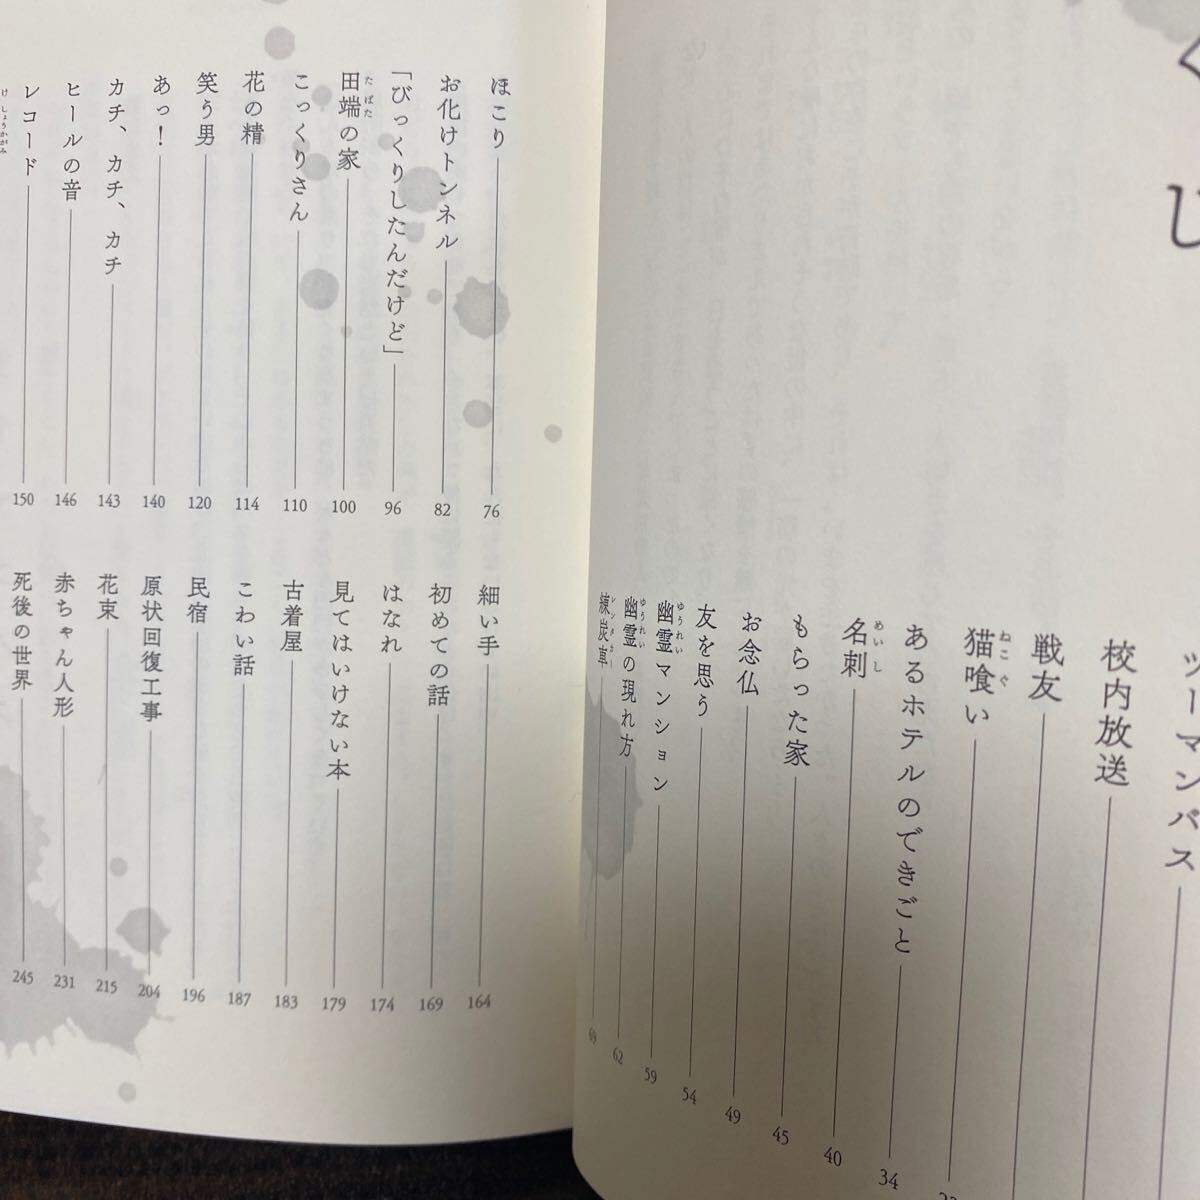 くじ
ツーマンバス
校内放送
戦友
猫喰い
ねこぐ
あるホテルのできごと 34
名刺 40
めいし
もらった家 45
お念仏 49
友を思う 54
幽霊マンション 59
ゆうれい
幽霊の現れ方 62
ゆうれい
練炭車 69
レンタカー
ほこり 76
お化けトンネル 82
「びっくりしたんだけど」 96
田端の家 100
たばた
こっくりさん 110
花の精 114
笑う男 120
あっ！ 140
カチ、カチ、カチ 143
ヒールの音 146
レコード 150
けしょうかがみ
細い手 164
初めての話 169
はなれ 174
見てはいけない本 179
古着屋 183
こわい話 187
民宿 196
原状回復工事 204
花束 215
赤ちゃん人形 231
死後の世界 245